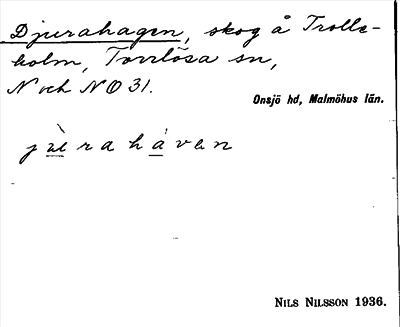 Djurahagen, skog å Trolle-
holm, Torrlösa sn,
N och NO 31.
Onsjö hd, Malmöhus län.
NILS NILSSON 1936.